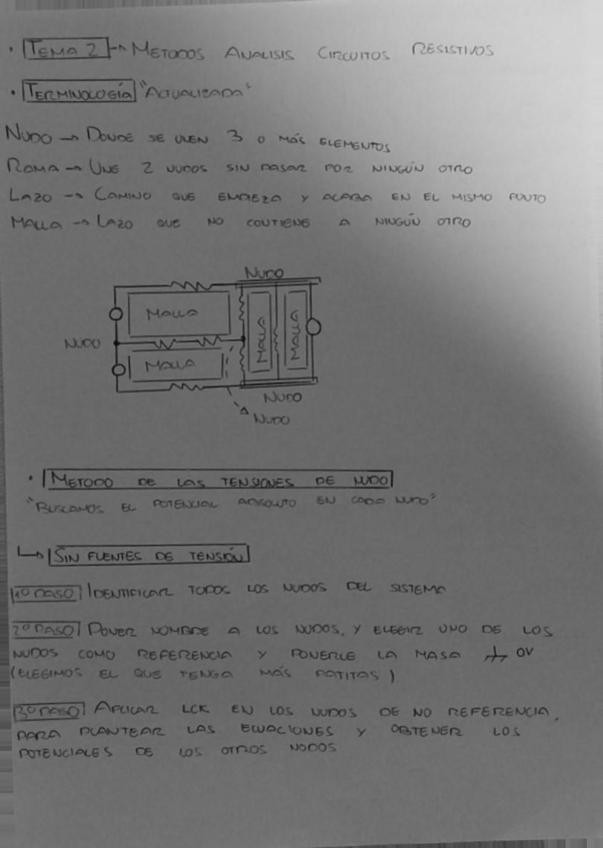 · TEMA 2 → METODOS ANALISIS CIRCUITOS RESISTIVOS
· TERMINOLOGÍA "ACTUALIZADA"
NUDO → DONDE SE UNEN 3 O MÁS ELEMENTOS
RAMA → UNE 2 NUDOS SIN PASAR POR NINGÚN OTRO
LAZO → CAMINO QUE EMPIEZA Y ACABA EN EL MISMO PUNTO
MALLA → LAZO QUE NO CONTIENE A NINGÚN OTRO
NUDO
MALLA
MALLA
MALLA
NUDO
MALLA
NUDO
NUDO
· METODO DE LAS TENSIONES DE NUDO
"BUSCAMOS EL POTENCIAL ABSOLUTO EN CADA NUDO"
↳ SIN FUENTES DE TENSIÓN
1º PASO IDENTIFICAR TODOS LOS NUDOS DEL SISTEMA
2º PASO PONER NOMBRE A LOS NUDOS, Y ELEGIR UNO DE LOS
NUDOS COMO REFERENCIA Y PONERLE LA MASA 0V
(ELEGIMOS EL QUE TENGA MÁS PATITAS)
3º PASO APLICAR LCK EN LOS NUDOS DE NO REFERENCIA,
PARA PLANTEAR LAS ECUACIONES Y OBTENER LOS
POTENCIALES DE LOS OTROS NODOS